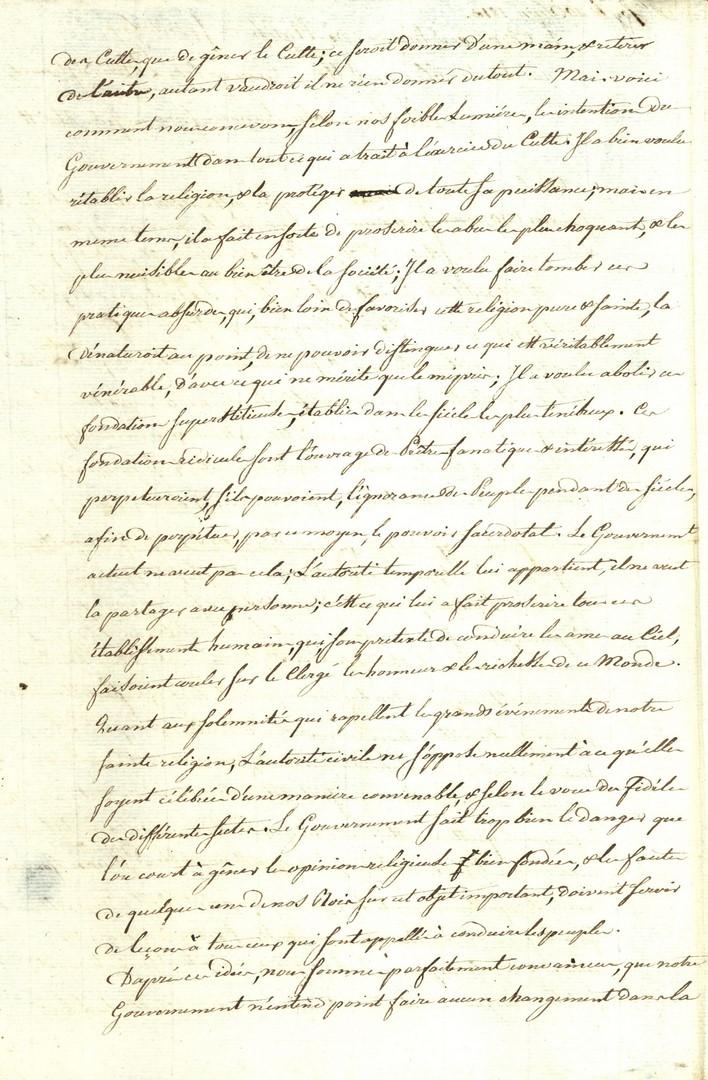 des Cultes, que de gêner le Culte; ce seroit donner d'une main, & retirer
de l'autre, autant vaudroit il ne rien donner du tout. Mais voici
comment nous concevons, selon nos foibles Lumières, les intentions du
Gouvernement dans tout ce qui a trait à l'exercice du Culte. Il a bien voulu
rétablir la religion, & la protéger de toute sa puissance; mais en
meme tems, il a fait ensorte de proscrire les abus les plus choquants, & les
plus nuisibles au bien être de la société; Il a voulu faire tomber ces
pratiques absurdes, qui, bien loin de favoriser cette religion pure & sainte, la
dénaturoit au point, de ne pouvoir distinguer ce qui est véritablement
vénérable, d'avec ce qui ne mérite que le mépris; Il a voulu abolir ces
fondations superstitieuses, établies dans les siécles les plus ténébreux. Ces
fondations ridicules sont l'ouvrage de Prêtres fanatiques & intéressés, qui
perpetueroient, s'ils pouvoient, l'ignorance des Peuples pendant des siécles,
afin de perpétuer, par ce moyen, le pouvoir sacerdotal. Le Gouvernemt
actuel ne veut pas cela; L'autorité temporelle lui appartient, il ne veut
la partager avec personne; c'est ce qui lui a fait proscrire tous ces
établissements humains, qui, sous pretexte de conduire les ames au Ciel,
faisoient couler sur le Clergé les honneurs & les richesses de ce Monde.
Quant aux solemnités qui rapellent les grands événements de notre
sainte religion, L'autorité civile ne s'oppose nullement à ce qu'elles
soyent célébrées d'une manière convenable, & selon le voeu des fidéles
des différentes sectes. Le Gouvernement sait trop bien le danger que
l'on court à gêner les opinions religieuses bien fondées, & les fautes
de quelques uns de nos Rois sur cet objet important, doivent servir
de leçons à tous ceux qui sont appellés à conduire les peuples.
D'après ces idées, nous sommes parfaitement convaincus, que notre
Gouvernement n'entend point faire aucun changement dans la